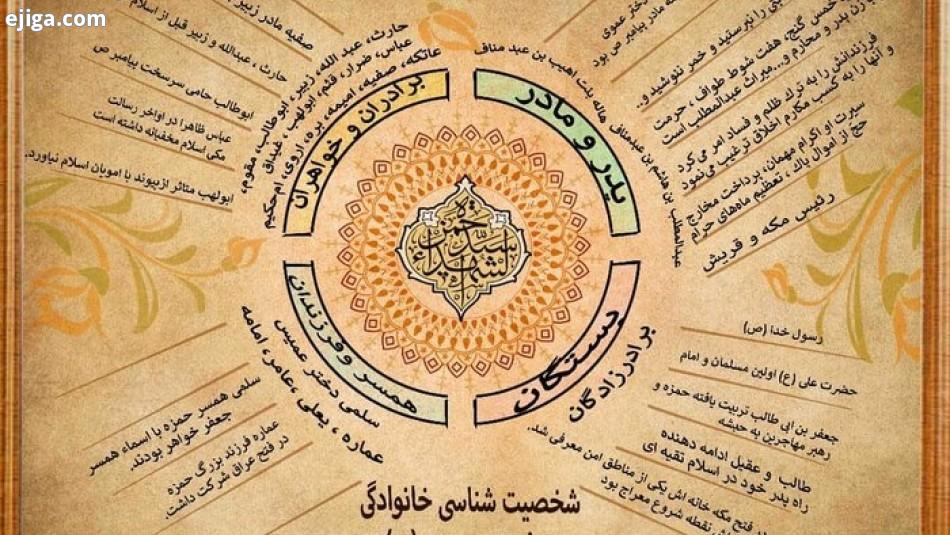 ejiga.com
صفیه مادر زبیر
حارث، عبدالله و زبیر قبل از اسلام
ابوطالب حامی سرسخت پیامبر ص
عباس ظاهرا در اواخر رسالت
مکی اسلام مخفیانه داشته است
ابولهب متاثر ازپیوند با امویان اسلام نیاورد.
حارث، عبد الله، زبیر، ابوطالب، مقوم،
عباس، ضرار، قثم، ابولهب، غیداق
عاتکه، صفیه، امیمه، بره، اروی، ام‌حکیم
برادران و خواهران
پدر و مادر
هاله بنت اهیب بن عبد مناف
عبدالمطلب بن هاشم بن عبدمناف
دختر عموی
مادر پیامبر ص بود
را نپرستید و خمر ننوشید و..
خمس گنج، هفت شوط طواف، حرمت
زن پدر و محارم و...میراث عبدالمطلب است
فرزندانش را به ترک ظلم و فساد امر می‌کرد
و آنها را به کسب مکارم اخلاق ترغیب می‌نمود
سیرت او اکرام مهمان، پرداخت مخارج
حج از اموال پاک، تعظیم ماه‌های حرام
رئیس مکه و قریش
حمزة
سید الشهداء
همسر و فرزندان
سلمی دختر عمیس
عماره، یعلی، عامر، امامه
سلمی همسر حمزه با اسماء همسر
جعفر خواهر بودند.
عماره فرزند بزرگ حمزه
در فتح عراق شرکت داشت.
بستگان
برادرزادگان
رسول خدا (ص)
حضرت علی (ع) اولین مسلمان و امام
جعفر بن ابی طالب تربیت یافته حمزه و
رهبر مهاجرین به حبشه
طالب و عقیل ادامه دهنده
راه پدر خود در اسلام تقیه ای
فتح مکه خانه اش یکی از مناطق امن معرفی شد.
نقطه شروع معراج بود
شخصیت شناسی خانوادگی